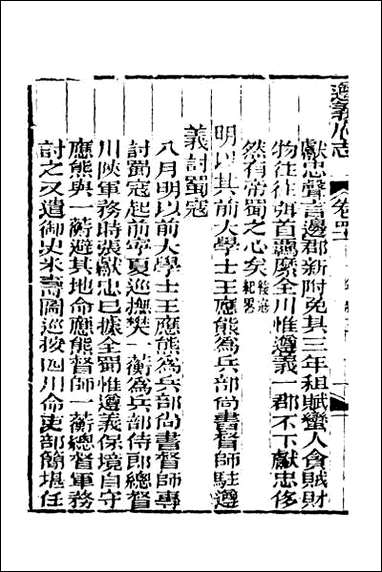 遵義府志
卷四十
獻忠聲言邊郡新附免其三年租賦蠻人貪賦財
物往往弭首羈縻全川惟遵義一郡不下獻忠侈
然有帝蜀之心矣 綏寇紀畧
明以其前大學士王應熊爲兵部尚書督師駐遵
義討蜀寇
八月明以前大學士王應熊爲兵部尚書督師專
討蜀寇起前寧夏巡撫樊一蘅爲兵部侍郎總督
川陝軍務時張獻忠已據全蜀惟遵義保境自守
應熊與一蘅避其地命應熊督師一蘅總督軍務
討之又遣御史米壽圖巡按四川命吏部簡堪任